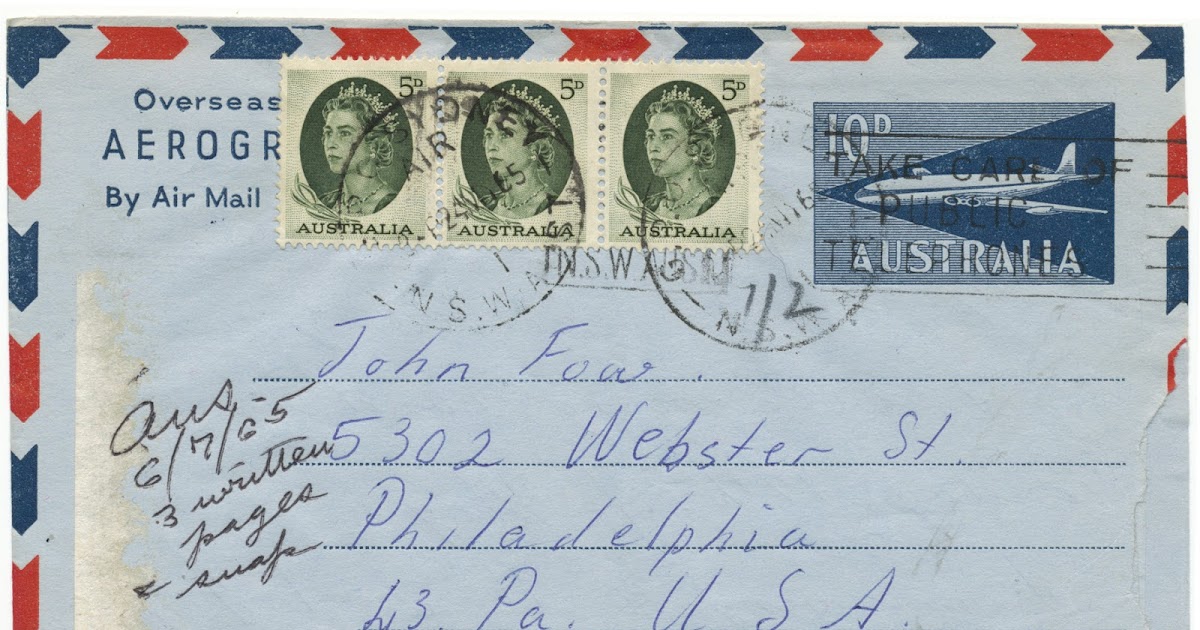 Overseas
AEROGR
By Air Mail
5D
AUSTRALIA
5D
AUSTRALIA
5D
AUSTRALIA
SYDNEY
AIR
N.S.W. AUST
N.S.W.AUST
N.S.W. A
10D
TAKE CARE OF
PUBLIC
TELEPHONES
AUSTRALIA
1/2
John Fow.
5302 Webster St.
Philadelphia
43. Pa. U. S. A.
Ans
6/7/65
3 written
pages
& snap